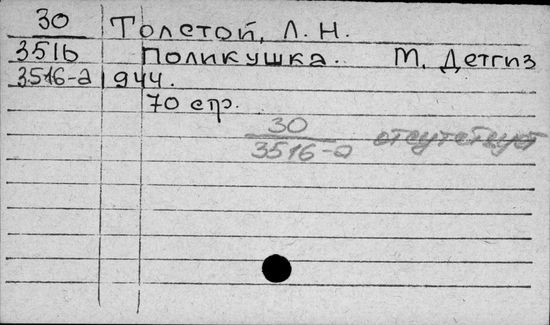 30 Толстой, Л. Н.
3516 Поликушка. М. Детгиз
3516-а 944.
70 стр.
30
3516-а отсутствует